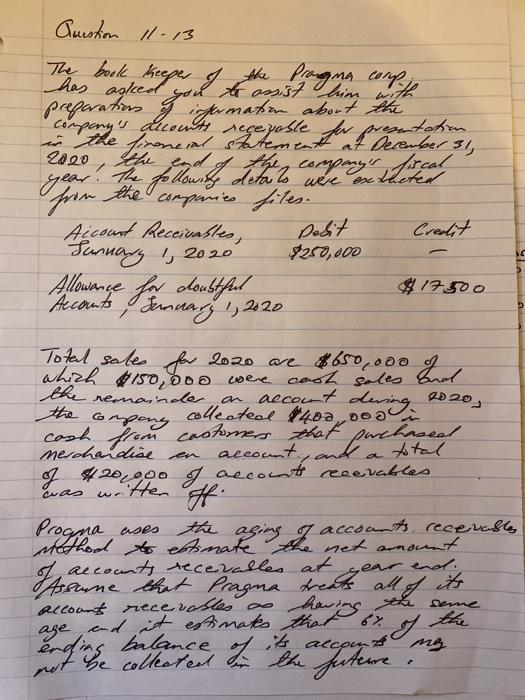 Question 11-13
The book keeper of the Pragma corp.
has asked you to assist him with
preparations of information about the
company's accounts receivable for presentation
in the financial statement at December 31,
2020, the end of the company's fiscal
year. The following details were extracted
from the companies files.
Account Receivables, Debit Credit
January 1, 2020 $250,000 —
Allowance for doubtful $17500
Accounts, January 1, 2020
Total sales for 2020 are $650,000 of
which $150,000 were cash sales and
the remainder on account during 2020,
the company collected $400,000 in
cash from customers that purchased
merchandise on account, and a total
of $20,000 of accounts receivables
was written off.
Pragma uses the aging of accounts receivables
method to estimate the net amount
of accounts receivables at year end.
Assume that Pragma treats all of its
accounts receivables as having the same
age and it estimates that 6% of the
ending balance of its accounts may
not be collected in the future.